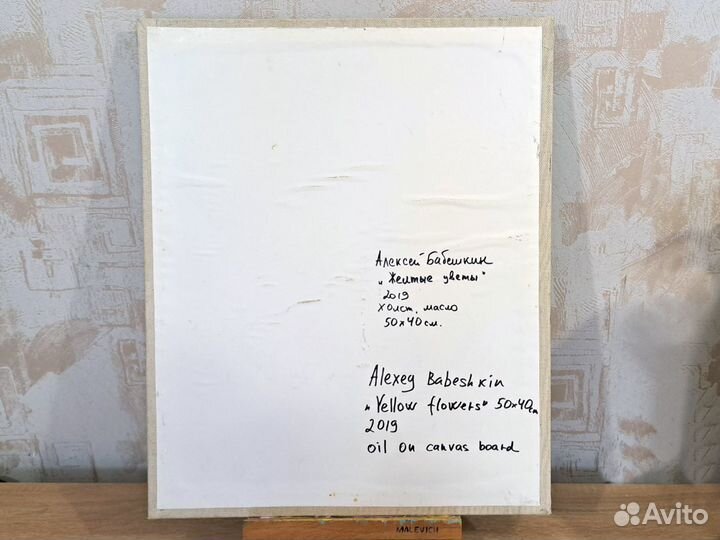 Алексей Бабешкин
„Желтые цветы"
2019
холст, масло
50х40см.
Alexey Babeshkin
„Yellow flowers" 50x40cm
2019
oil on canvas board
MALEVICH
Avito